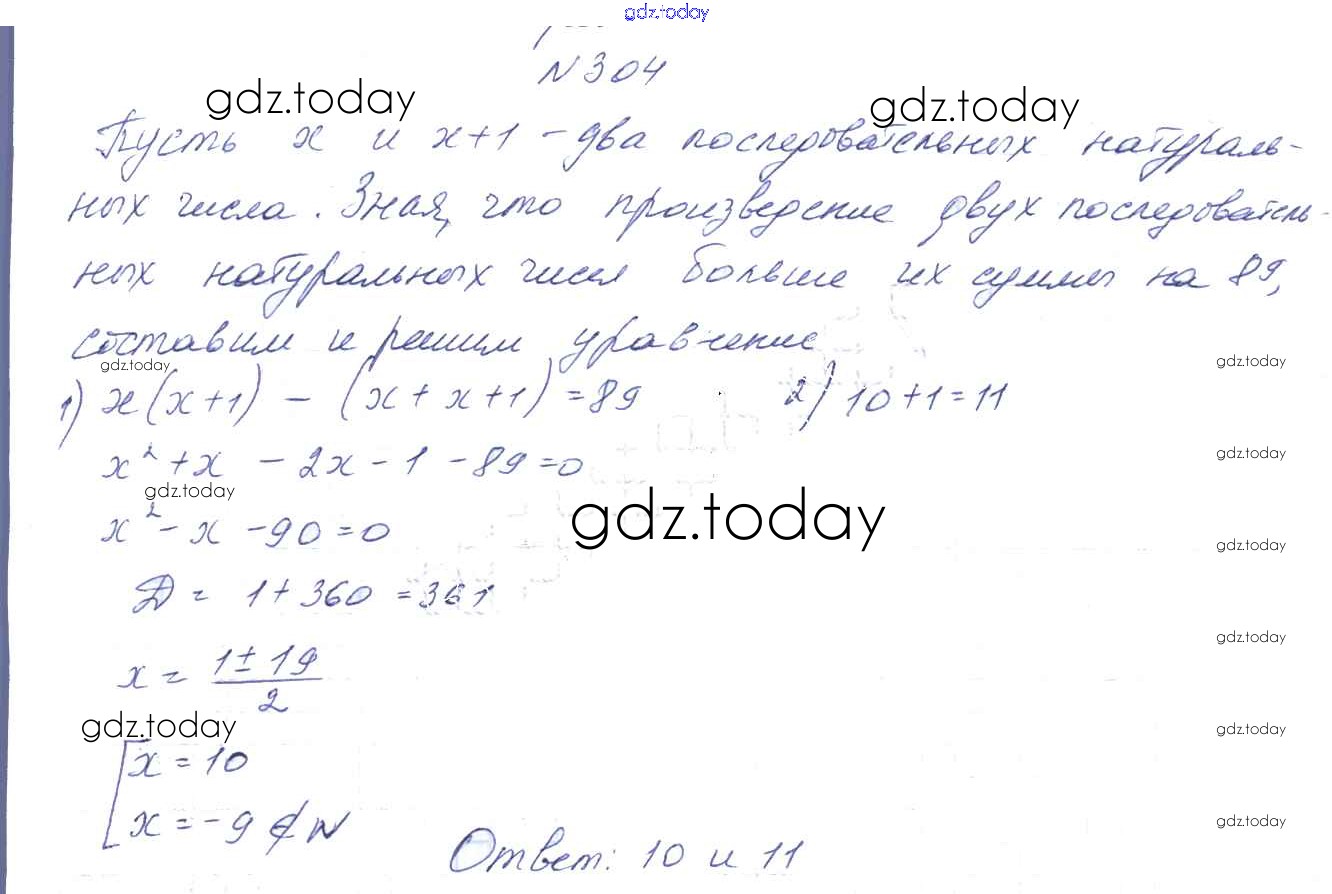 gdz.today
N 304
gdz.today gdz.today
Пусть x и x+1 – два последовательных натураль-
ных числа. Зная, что произведение двух последователь-
ных натуральных чисел больше их суммы на 89,
составим и решим уравнение
gdz.today gdz.today
1) x(x+1) – (x+x+1) = 89 2) 10+1=11
x² + x – 2x – 1 – 89 = 0 gdz.today
gdz.today gdz.today
x² – x – 90 = 0 gdz.today
D = 1 + 360 = 361
x = (1 ± 19)/2 gdz.today
gdz.today gdz.today
[x = 10
x = –9 ∉ N gdz.today
Ответ: 10 и 11